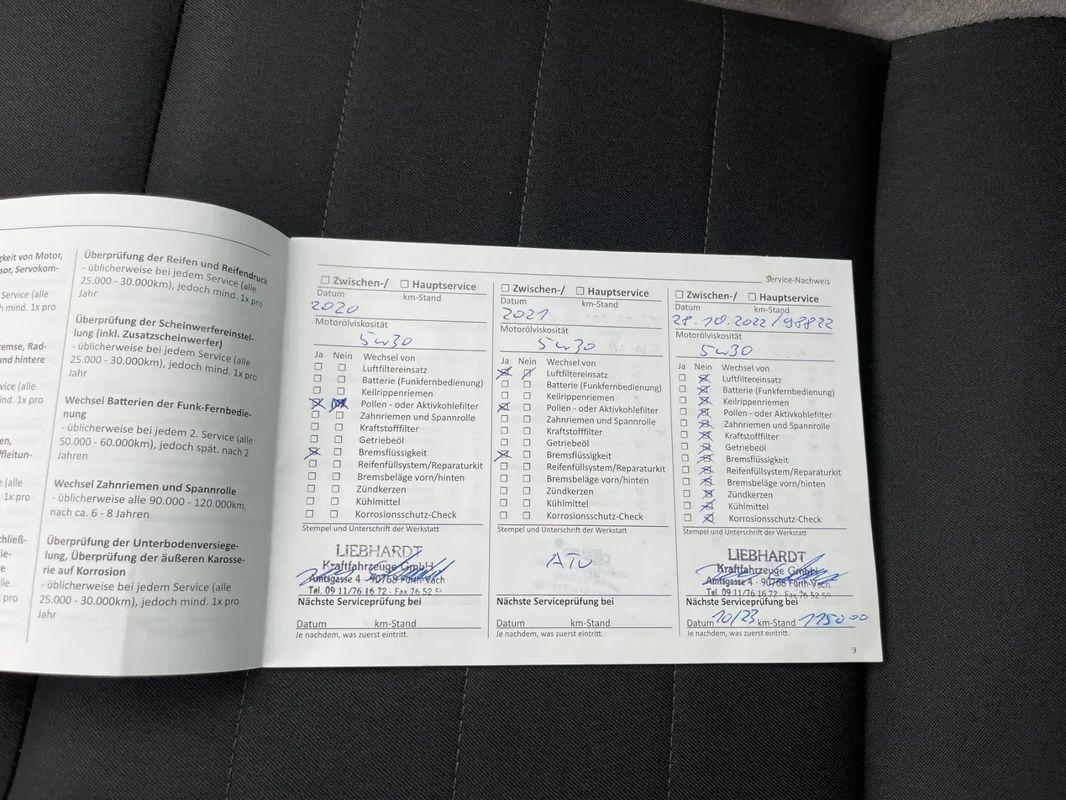 gkeit von Motor,
sor, Servokom-
Service (alle
h mind. 1x pro
remse, Rad-
und hintere
vice (alle
ind. 1x pro
en,
ffleitun-
e (alle
1x pro
chließ-
ie-
re
lle
ro
Überprüfung der Reifen und Reifendruck
- üblicherweise bei jedem Service (alle
25.000 - 30.000km), jedoch mind. 1x pro
Jahr
Überprüfung der Scheinwerfereinstel-
lung (inkl. Zusatzscheinwerfer)
- üblicherweise bei jedem Service (alle
25.000 - 30.000km), jedoch mind. 1x pro
Jahr
Wechsel Batterien der Funk-Fernbedie-
nung
- üblicherweise bei jedem 2. Service (alle
50.000 - 60.000km), jedoch spät. nach 2
Jahren
Wechsel Zahnriemen und Spannrolle
- üblicherweise alle 90.000 - 120.000km,
nach ca. 6 - 8 Jahren
Überprüfung der Unterbodenversiege-
lung, Überprüfung der äußeren Karosse-
rie auf Korrosion
- üblicherweise bei jedem Service (alle
25.000 - 30.000km), jedoch mind. 1x pro
Jahr
Service-Nachweis
Zwischen-/ Hauptservice
Datum km-Stand
2020
Motorölviskosität
5w30
Ja Nein Wechsel von
Luftfiltereinsatz
Batterie (Funkfernbedienung)
Keilrippenriemen
Pollen - oder Aktivkohlefilter
Zahnriemen und Spannrolle
Kraftstofffilter
Getriebeöl
Bremsflüssigkeit
Reifenfüllsystem/Reparaturkit
Bremsbeläge vorn/hinten
Zündkerzen
Kühlmittel
Korrosionsschutz-Check
Stempel und Unterschrift der Werkstatt
LIEBHARDT
Kraftfahrzeuge GmbH
Amtsgasse 4 · 90768 Fürth-Vach
Tel. 09 11/76 16 72 · Fax 76 52 5
Nächste Serviceprüfung bei
Datum km-Stand
Je nachdem, was zuerst eintritt.
Zwischen-/ Hauptservice
Datum km-Stand
2021
Motorölviskosität
5w30
Ja Nein Wechsel von
Luftfiltereinsatz
Batterie (Funkfernbedienung)
Keilrippenriemen
Pollen - oder Aktivkohlefilter
Zahnriemen und Spannrolle
Kraftstofffilter
Getriebeöl
Bremsflüssigkeit
Reifenfüllsystem/Reparaturkit
Bremsbeläge vorn/hinten
Zündkerzen
Kühlmittel
Korrosionsschutz-Check
Stempel und Unterschrift der Werkstatt
ATU
Nächste Serviceprüfung bei
Datum km-Stand
Je nachdem, was zuerst eintritt.
Zwischen-/ Hauptservice
Datum km-Stand
28.10.2022/98822
Motorölviskosität
5w30
Ja Nein Wechsel von
Luftfiltereinsatz
Batterie (Funkfernbedienung)
Keilrippenriemen
Pollen - oder Aktivkohlefilter
Zahnriemen und Spannrolle
Kraftstofffilter
Getriebeöl
Bremsflüssigkeit
Reifenfüllsystem/Reparaturkit
Bremsbeläge vorn/hinten
Zündkerzen
Kühlmittel
Korrosionsschutz-Check
Stempel und Unterschrift der Werkstatt
LIEBHARDT
Kraftfahrzeuge GmbH
Amtsgasse 4 · 90768 Fürth-Vach
Tel. 09 11/76 16 72 · Fax 76 52 5
Nächste Serviceprüfung bei
Datum 10/23 km-Stand 115000
Je nachdem, was zuerst eintritt.
9